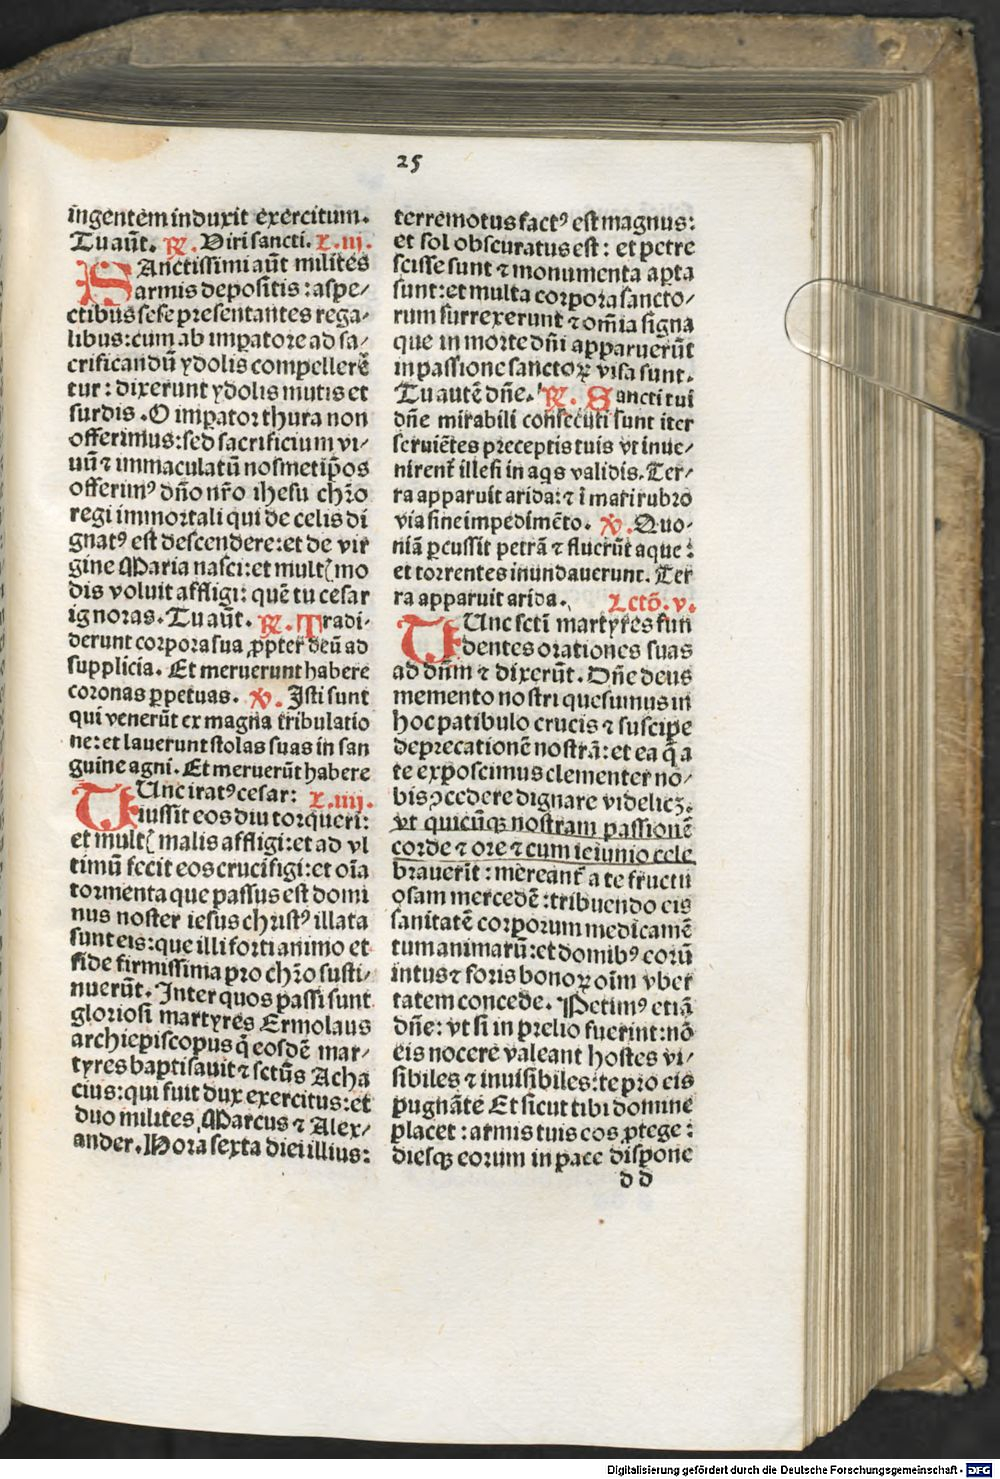 25
ingentem induxit exercitum.
Tu aūt. ꝶ. Viri sancti. L. iij.
SAnctissimi aūt milites
armis depositis : aspe⸗
ctibus sese presentantes rega⸗
libus: cum ab impatore ad sa⸗
crificandū ydolis compellerē
tur : dixerunt ydolis mutis et
surdis . O impator thura non
offerimus: sed sacrificium vi⸗
uū ⁊ immaculatū nosmetip̄os
offerimꝰ dño nr̄o ihesu chr̄o
regi immortali qui de celis di
gnatꝰ est descendere: et de vir
gine Maria nasci: et multꝭ mo
dis voluit affligi : quē tu cesar
ignoras. Tu aūt. ꝶ. Tradi⸗
derunt corpora sua ꝓpter deū ad
supplicia. Et meruerunt habere
coronas ꝑpetuas. ℣. Isti sunt
qui venerūt ex magna tribulatio
ne: et lauerunt stolas suas in san
guine agni. Et meruerūt habere
TUnc iratꝰ cesar: L. iiij.
iussit eos diu torqueri:
et multꝭ malis affligi: et ad vl
timū fecit eos crucifigi: et oīa
tormenta que passus est domi
nus noster iesus christꝰ illata
sunt eis: que illi forti animo et
fide firmissima pro chr̄o susti⸗
nuerūt. Inter quos passi sunt
gloriosi martyres Ermolaus
archiepiscopus q̄ eosdē mar⸗
tyres baptisauit ⁊ sctūs Acha
cius: qui fuit dux exercitus: et
duo milites Marcus ⁊ Alex⸗
ander. Hora sexta diei illius:
terremotus factꝰ est magnus:
et sol obscuratus est : et petre
scisse sunt ⁊ monumenta apta
sunt: et multa corpora sancto⸗
rum surrexerunt ⁊ om̄ia signa
que in morte dñi apparuerūt
in passione sanctoꝝ visa sunt.
Tu autē dñe. ꝶ. Sancti tui
dñe mirabili consecuti sunt iter
seruiētes preceptis tuis vt inue⸗
nirent̄ illesi in aqs validis. Ter⸗
ra apparuit arida: ⁊ ī mari rubro
via sine impedimēto. ℣. Quo⸗
niā ꝑcussit petrā ⁊ fluerūt aque :
et torrentes inundauerunt. Ter
ra apparuit arida. Lctō. v.
TUnc sctī martyres fun
dentes orationes suas
ad dñm ⁊ dixerūt. Dñe deus
memento nostri quesumus in
hoc patibulo crucis ⁊ suscipe
deprecationē nostrā: et ea q̄ a
te exposcimus clementer no⸗
bis ꝯcedere dignare videlicꝫ.
vt quicūqꝫ nostram passionē
corde ⁊ ore ⁊ cum ieiunio cele
brauerīt : mereant̄ a te fructu
osam mercedē : tribuendo eis
sanitatē corporum medicamē
tum animarū: et domibꝰ eorū
intus ⁊ foris bonoꝝ oīm vber
tatem concede. Petimꝰ etiā
dñe: vt si in prelio fuerint: nō
eis nocere valeant hostes vi⸗
sibiles ⁊ inuisibiles: te pro eis
pugnāte Et sicut tibi domine
placet : armis tuis eos ꝓtege :
diesqꝫ eorum in pace dispone
d d
Digitalisierung gefördert durch die Deutsche Forschungsgemeinschaft - DFG